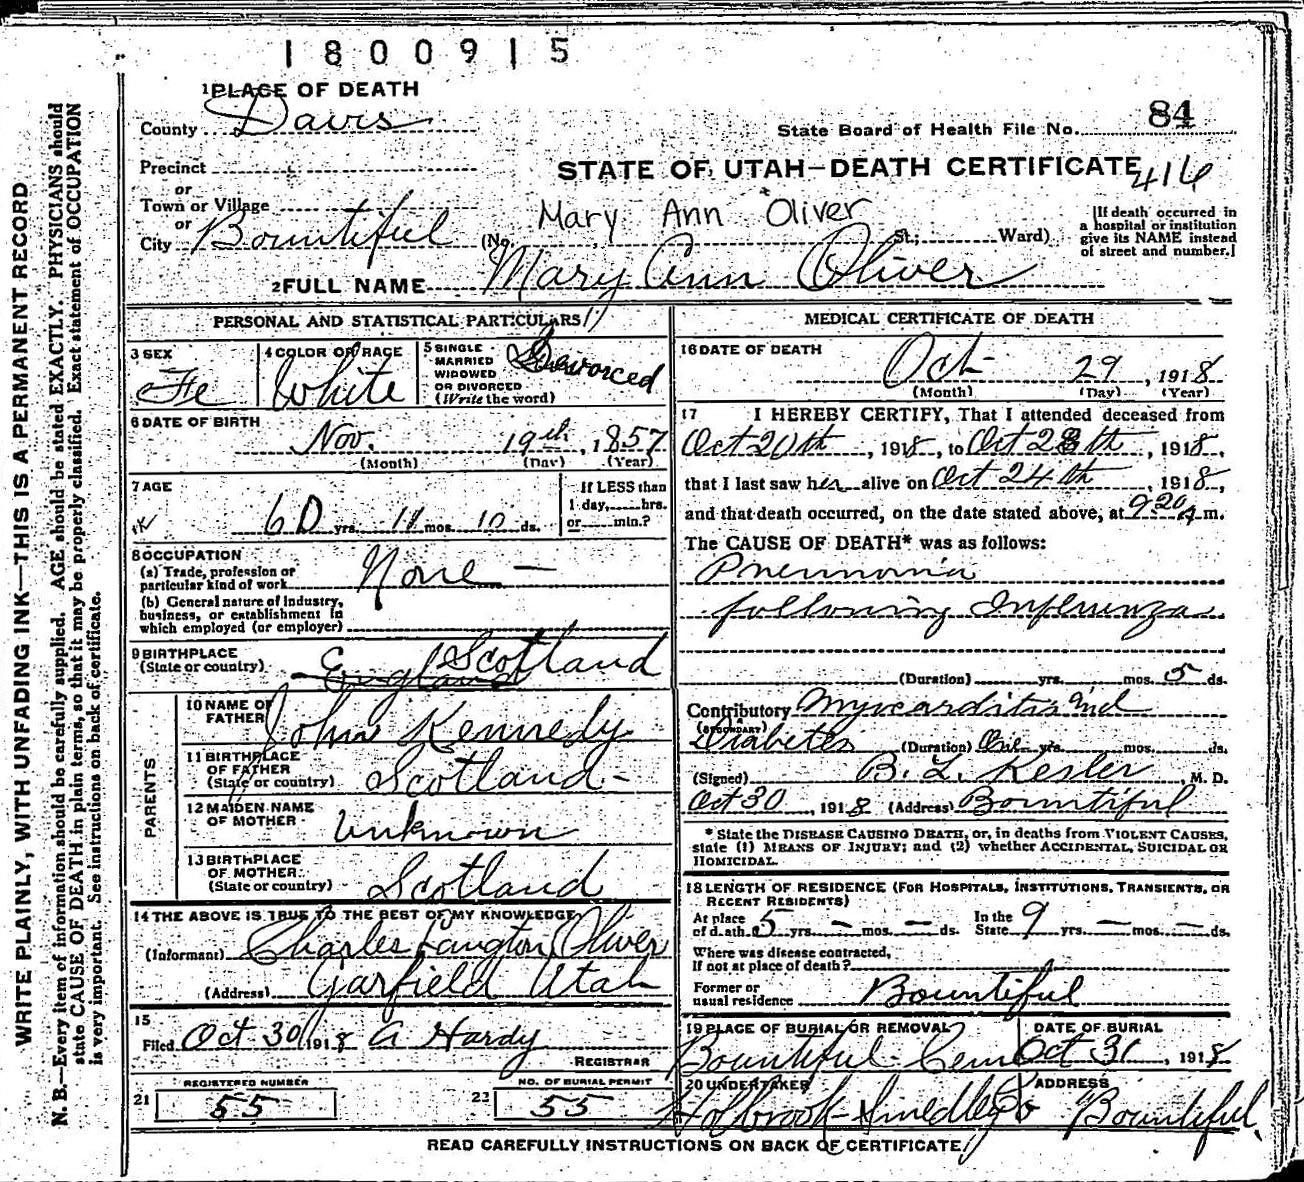 1800915
1 PLACE OF DEATH
County Davis
State Board of Health File No. 84
Precinct
STATE OF UTAH—DEATH CERTIFICATE 416
or
Town or Village
or
City Bountiful (No. Mary Ann Oliver St.; Ward)
[If death occurred in
a hospital or institution
give its NAME instead
of street and number.]
2 FULL NAME Mary Ann Oliver
PERSONAL AND STATISTICAL PARTICULARS
3 SEX Fe
4 COLOR OR RACE White
5 SINGLE
MARRIED
WIDOWED
OR DIVORCED
(Write the word) Devorced
6 DATE OF BIRTH
Nov. 19th, 1857
(Month) (Day) (Year)
7 AGE
60 yrs. 11 mos. 10 ds.
If LESS than
1 day, hrs.
or min.?
8 OCCUPATION
(a) Trade, profession or
particular kind of work None —
(b) General nature of industry,
business, or establishment in
which employed (or employer)
9 BIRTHPLACE
(State or country) England Scotland
PARENTS
10 NAME OF
FATHER John Kennedy
11 BIRTHPLACE
OF FATHER
(State or country) Scotland -
12 MAIDEN NAME
OF MOTHER Unknown
13 BIRTHPLACE
OF MOTHER
(State or country) Scotland
14 THE ABOVE IS TRUE TO THE BEST OF MY KNOWLEDGE
(Informant) Charles Langton Oliver
(Address) Garfield Utah
15
Filed Oct 30 1918 A Hardy
REGISTRAR
REGISTERED NUMBER
21 55
NO. OF BURIAL PERMIT
22 55
MEDICAL CERTIFICATE OF DEATH
16 DATE OF DEATH
Oct 29, 1918
(Month) (Day) (Year)
17 I HEREBY CERTIFY, That I attended deceased from
Oct 20th, 1918, to Oct 28th, 1918,
that I last saw her alive on Oct 24th, 1918,
and that death occurred, on the date stated above, at 9.20 A m.
The CAUSE OF DEATH* was as follows:
Pneumonia
following Influenza
(Duration) yrs. mos. 5 ds.
Contributory Myocarditis and
(SECONDARY)
Diabetis (Duration) One yrs. mos. ds.
(Signed) B. L. Kesler, M. D.
Oct 30, 1918 (Address) Bountiful
* State the DISEASE CAUSING DEATH, or, in deaths from VIOLENT CAUSES,
state (1) MEANS OF INJURY; and (2) whether ACCIDENTAL, SUICIDAL OR
HOMICIDAL.
18 LENGTH OF RESIDENCE (FOR HOSPITALS, INSTITUTIONS, TRANSIENTS, OR
RECENT RESIDENTS)
At place
of death 5 yrs. — mos. — ds.
In the
State 9 yrs. — mos. — ds.
Where was disease contracted,
If not at place of death?
Former or
usual residence Bountiful
19 PLACE OF BURIAL OR REMOVAL
Bountiful Cem
DATE OF BURIAL
Oct 31, 1918
20 UNDERTAKER
Holbrook-Smedley Co
ADDRESS
Bountiful
READ CAREFULLY INSTRUCTIONS ON BACK OF CERTIFICATE
WRITE PLAINLY, WITH UNFADING INK—THIS IS A PERMANENT RECORD
N. B.—Every item of information should be carefully supplied. AGE should be stated EXACTLY. PHYSICIANS should
state CAUSE OF DEATH in plain terms, so that it may be properly classified. Exact statement of OCCUPATION
is very important. See instructions on back of certificate.